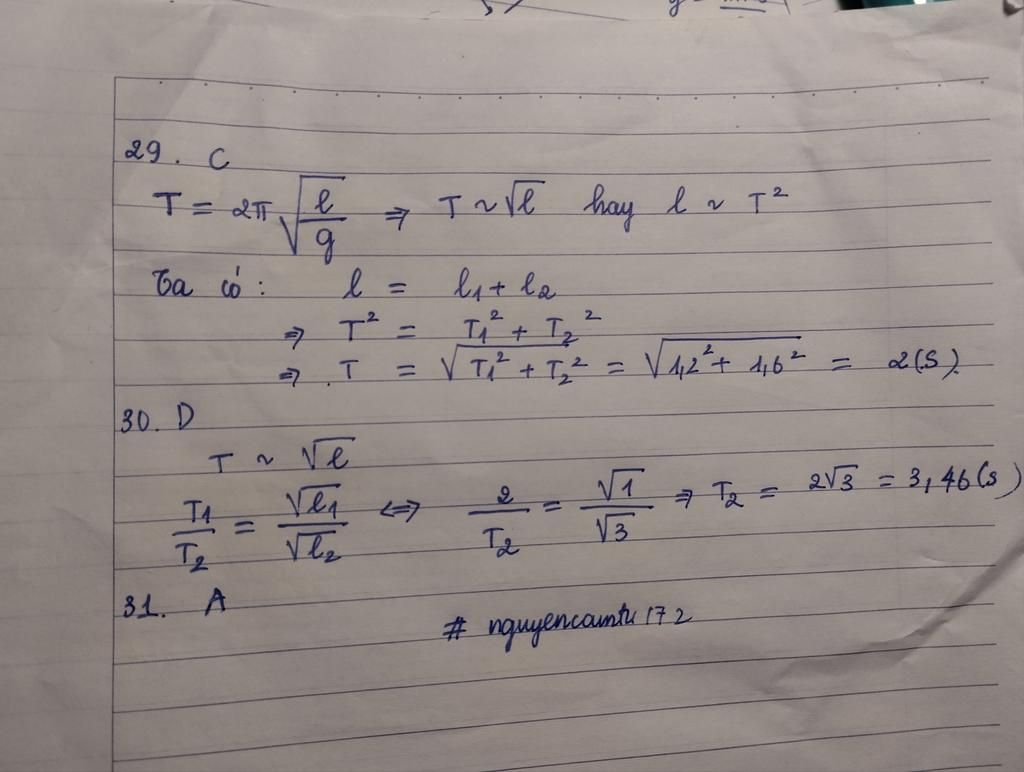 29. C
T = 2π√(l/g) ⇒ T ~ √l hay l ~ T²
Ta có: l = l₁ + l₂
⇒ T² = T₁² + T₂²
⇒ T = √(T₁² + T₂²) = √(1,2² + 1,6²) = 2(s).
30. D
T ~ √l
T₁/T₂ = √l₁/√l₂ ⇔ 2/T₂ = √1/√3 ⇒ T₂ = 2√3 = 3,46(s)
31. A
# nguyencamtu172